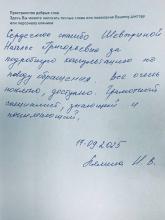 Пространство добрых слов
Здесь Вы можете написать теплые слова или пожелания Вашему доктору
или персоналу клиники
Сердечное спасибо Шевтриной
Наталье Григорьевне за
подробную консультацию по
поводу обращения. Все очень
понятно, доступно. Грамотный
специалист, знающий и
17.09.2025
И. В.